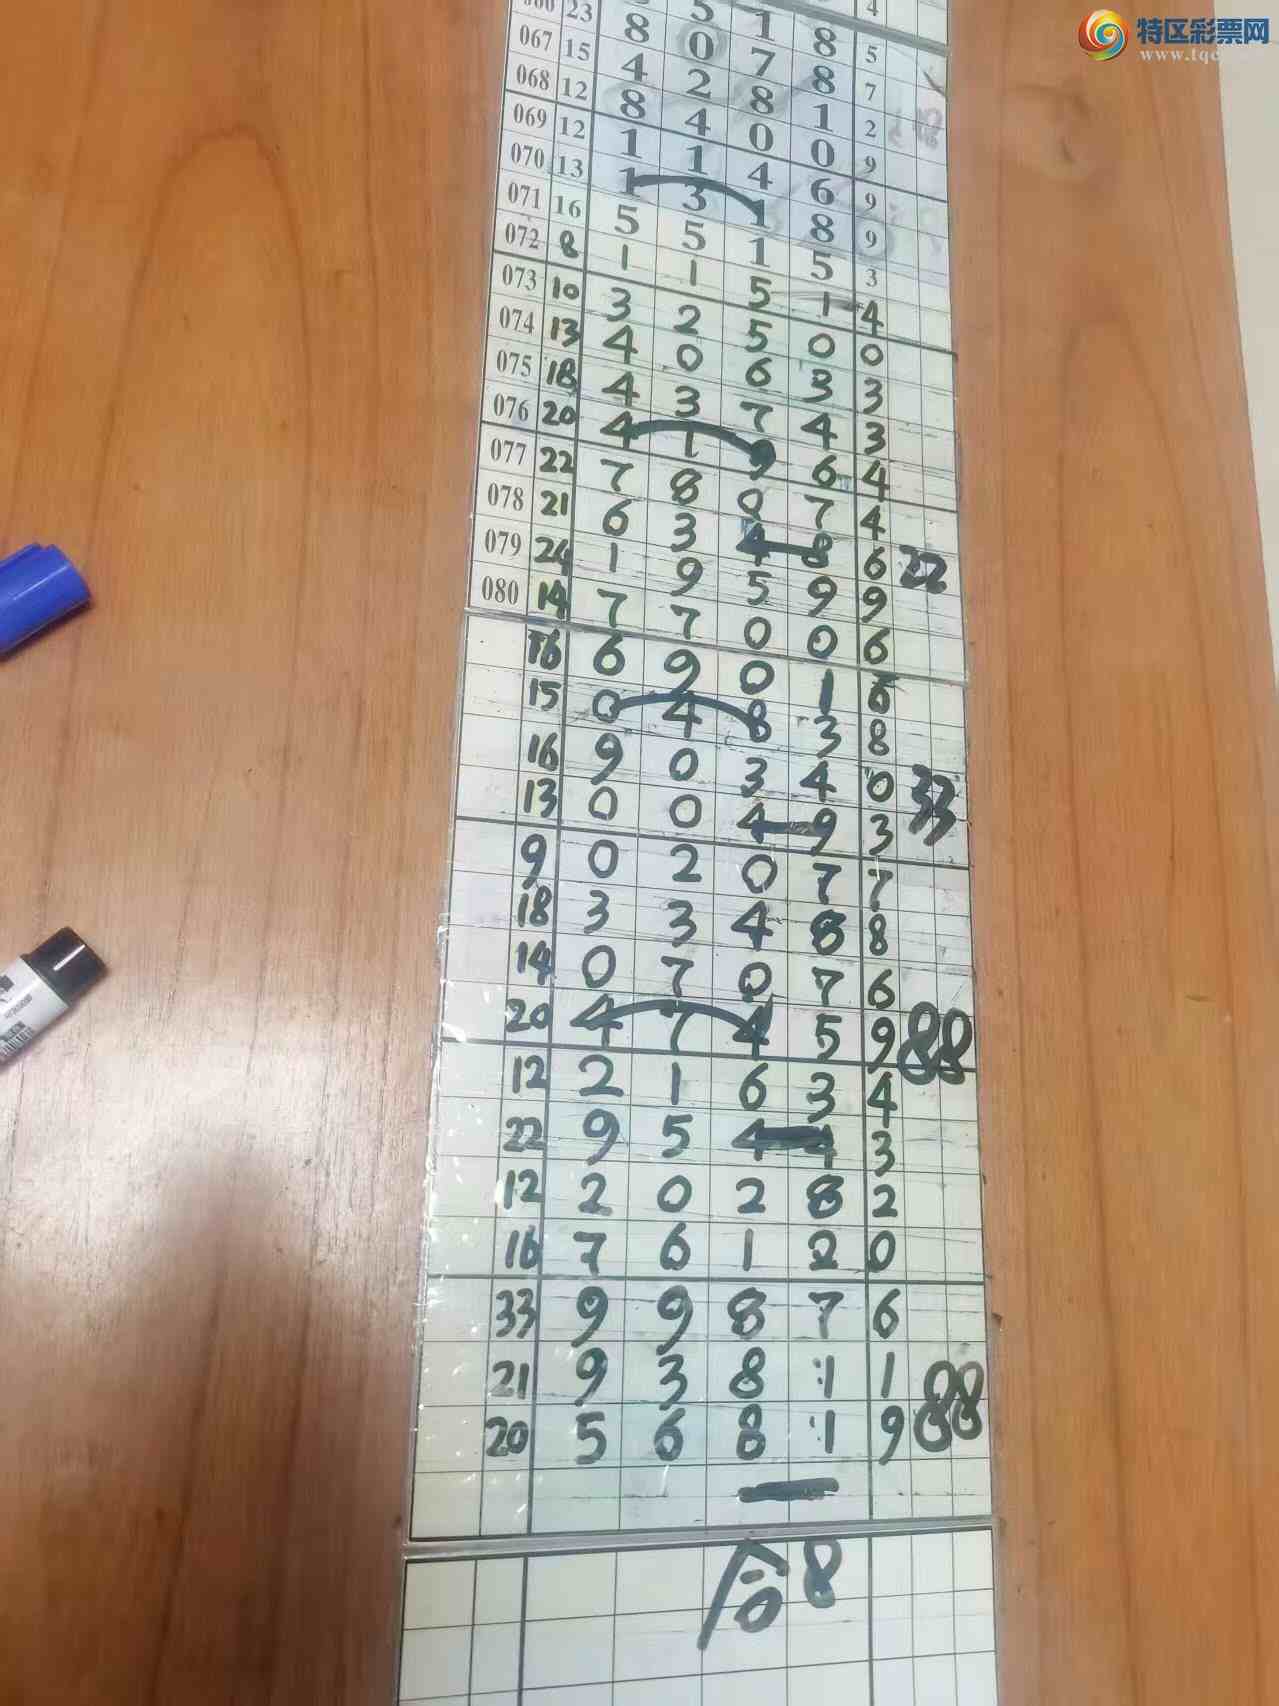 特区彩票网
4
5 1 8 5
23 8 0 7 8 7
067 15 4 2 8 1 2
068 12 8 4 0 0 9
069 12 1 1 4 6 9
070 13 1 3 1 8 9
071 16 5 5 1 5 3
072 8 1 1 5 1 4
073 10 3 2 5 0 0
074 13 4 0 6 3 3
075 18 4 3 7 4 3
076 20 4 1 9 6 4
077 22 7 8 0 7 4
078 21 6 3 4 8 6 22
079 24 1 9 5 9 9
080 14 7 7 0 0 6
16 6 9 0 1 6
15 0 4 8 3 8
16 9 0 3 4 0 33
13 0 0 4 9 3
9 0 2 0 7 7
18 3 3 4 8 8
14 0 7 0 7 6
20 4 7 4 5 9 88
12 2 1 6 3 4
22 9 5 4 4 3
12 2 0 2 8 2
16 7 6 1 2 0
33 9 9 8 7 6
21 9 3 8 1 1 88
20 5 6 8 1 9
合8